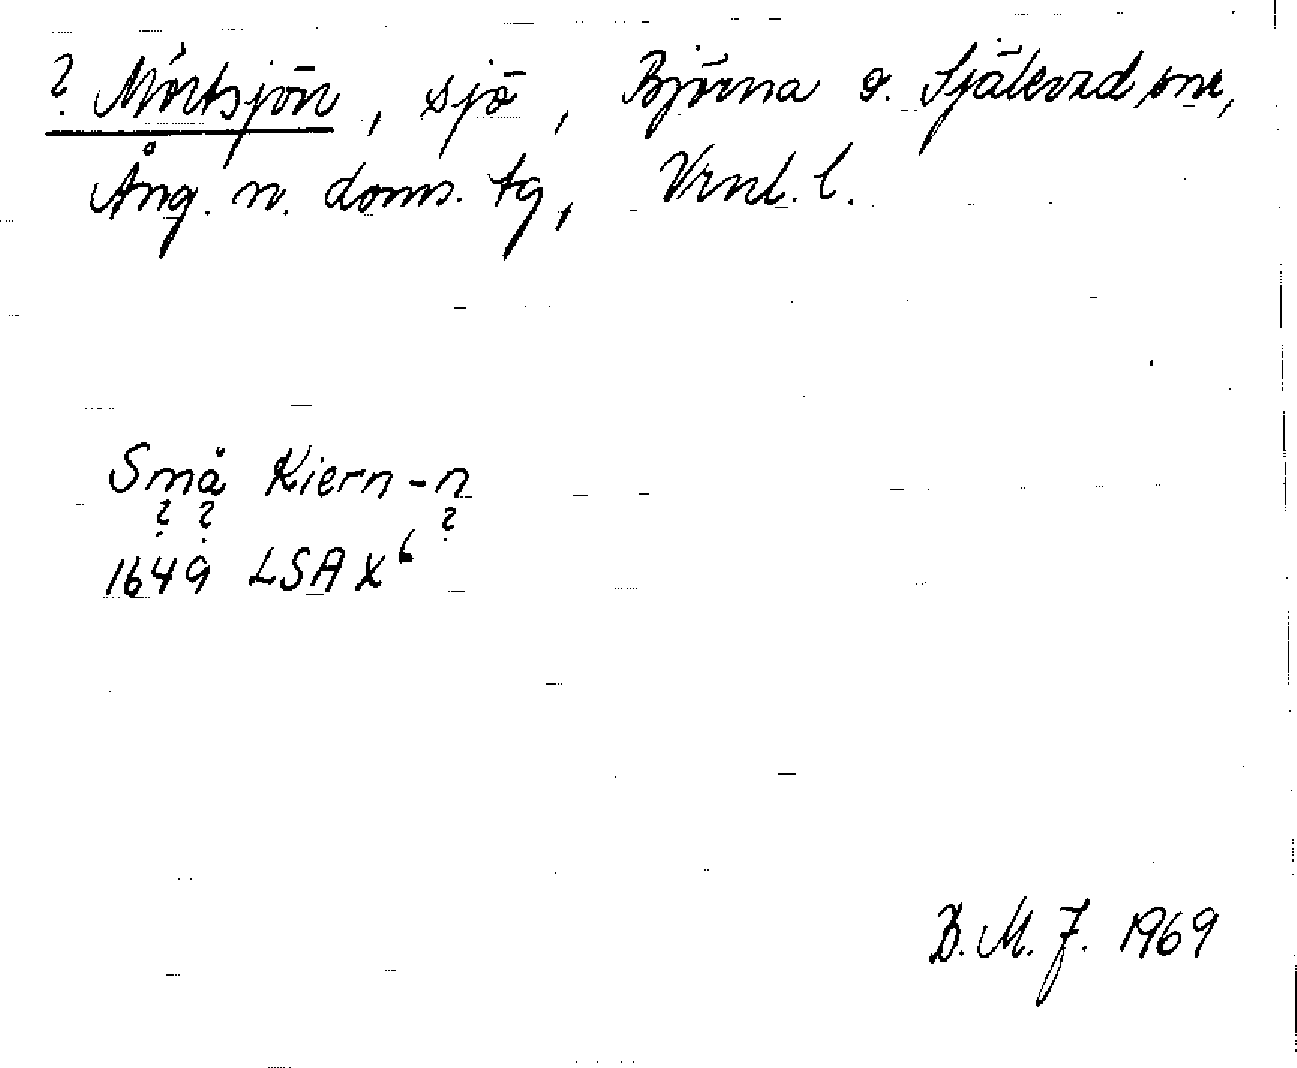 ? Mörtsjön, sjö, Björna o. Själevad snr,
Ång. n. doms. tg, Vrnl. l.
Små Kiern-n
? ? ?
1649 LSA X⁶
B.M.J. 1969